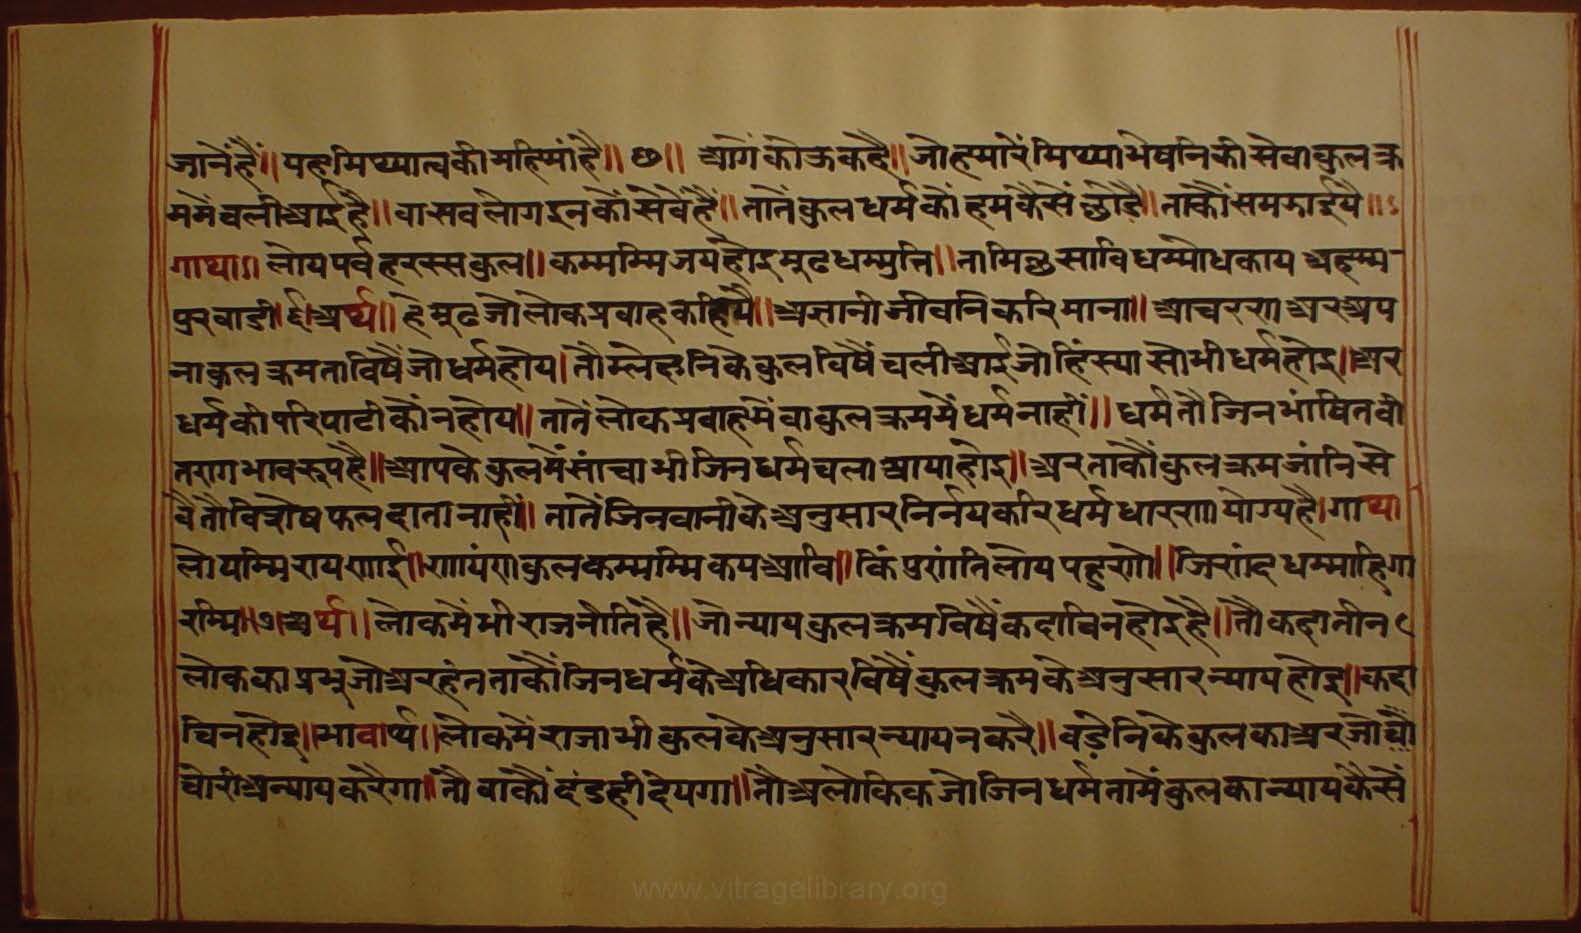 जानेंहैं॥ यहमिथ्यात्वकीमहिमांहै॥ छ॥ आगेंकोऊकहै॥ जोहमारेंमिथ्याभेषनिकीसेवाकुलक्र
ममेंचलीआईहै॥ वासवलोगइनकोंसेवेहैं॥ तातेंकुलधर्मकोंहमकैसेंछोडै॥ ताकोंसमझाईयै॥ऽ
गाथा॥ लोयपर्वहरस्सकुल॥ कम्मम्मिजयहोइमुढधम्मुत्ति॥ नामिछसाविधम्मोधकायअहम्म
पुरवाडी।६।अर्थ॥ हेमुढजोलोकप्रवाहकहियै॥ अज्ञानीजीवनिकरिमाना॥ आचरणअरअप
नाकुलक्रमताविषैंजोधर्महोय। तौम्लेछनिकेकुलविषैंचलीआईजोहिंस्यासोभीधर्महोइ॥ अर
धर्मकीपरिपाटीकौंनहोय॥ तातेंलोकप्रवाहमेंवाकुलक्रममेंधर्मनाहीं॥ धर्मतौजिनभांषितवी
तरागभावरूपहै॥ आपकेकुलमेंसांचाभीजिनधर्मचलाआयाहोइ॥ अरताकौंकुलक्रमजांनिसे
वैतौविशेषफलदातानाहीं॥ तातेंजिनवानीकेअनुसारनिर्नयकरिधर्मधारणायोग्यहै।गाथा
लोयम्मिरायणाई॥ णायंणकुलकम्मम्मिकयआवि॥ किंपुणंतिलोयपहुणो॥ जिणंदधम्माहिगा
रम्मि॥७।अर्थ॥ लोकमेंभीराजनीतिहै॥ जोन्यायकुलक्रमविषैंकदाचिनहोइहै॥ तौकहातीन९
लोककाप्रभुजोअरहंतताकौंजिनधर्मकेअधिकारविषैंकुलक्रमकेअनुसारन्यायहोइ॥ कदा
चिनहोइ॥ भावार्थ॥ लोकमेंराजाभीकुलकेअनुसारन्यायनकरै॥ वडेनिकेकुलकाअरजोचो
चोरीअन्यायकरैगा॥ तौवाकौंदंडहीदेयगा॥ तौअलोकिकजोजिनधर्मतामेंकुलकान्यायकैसें
www.vitragelibrary.org